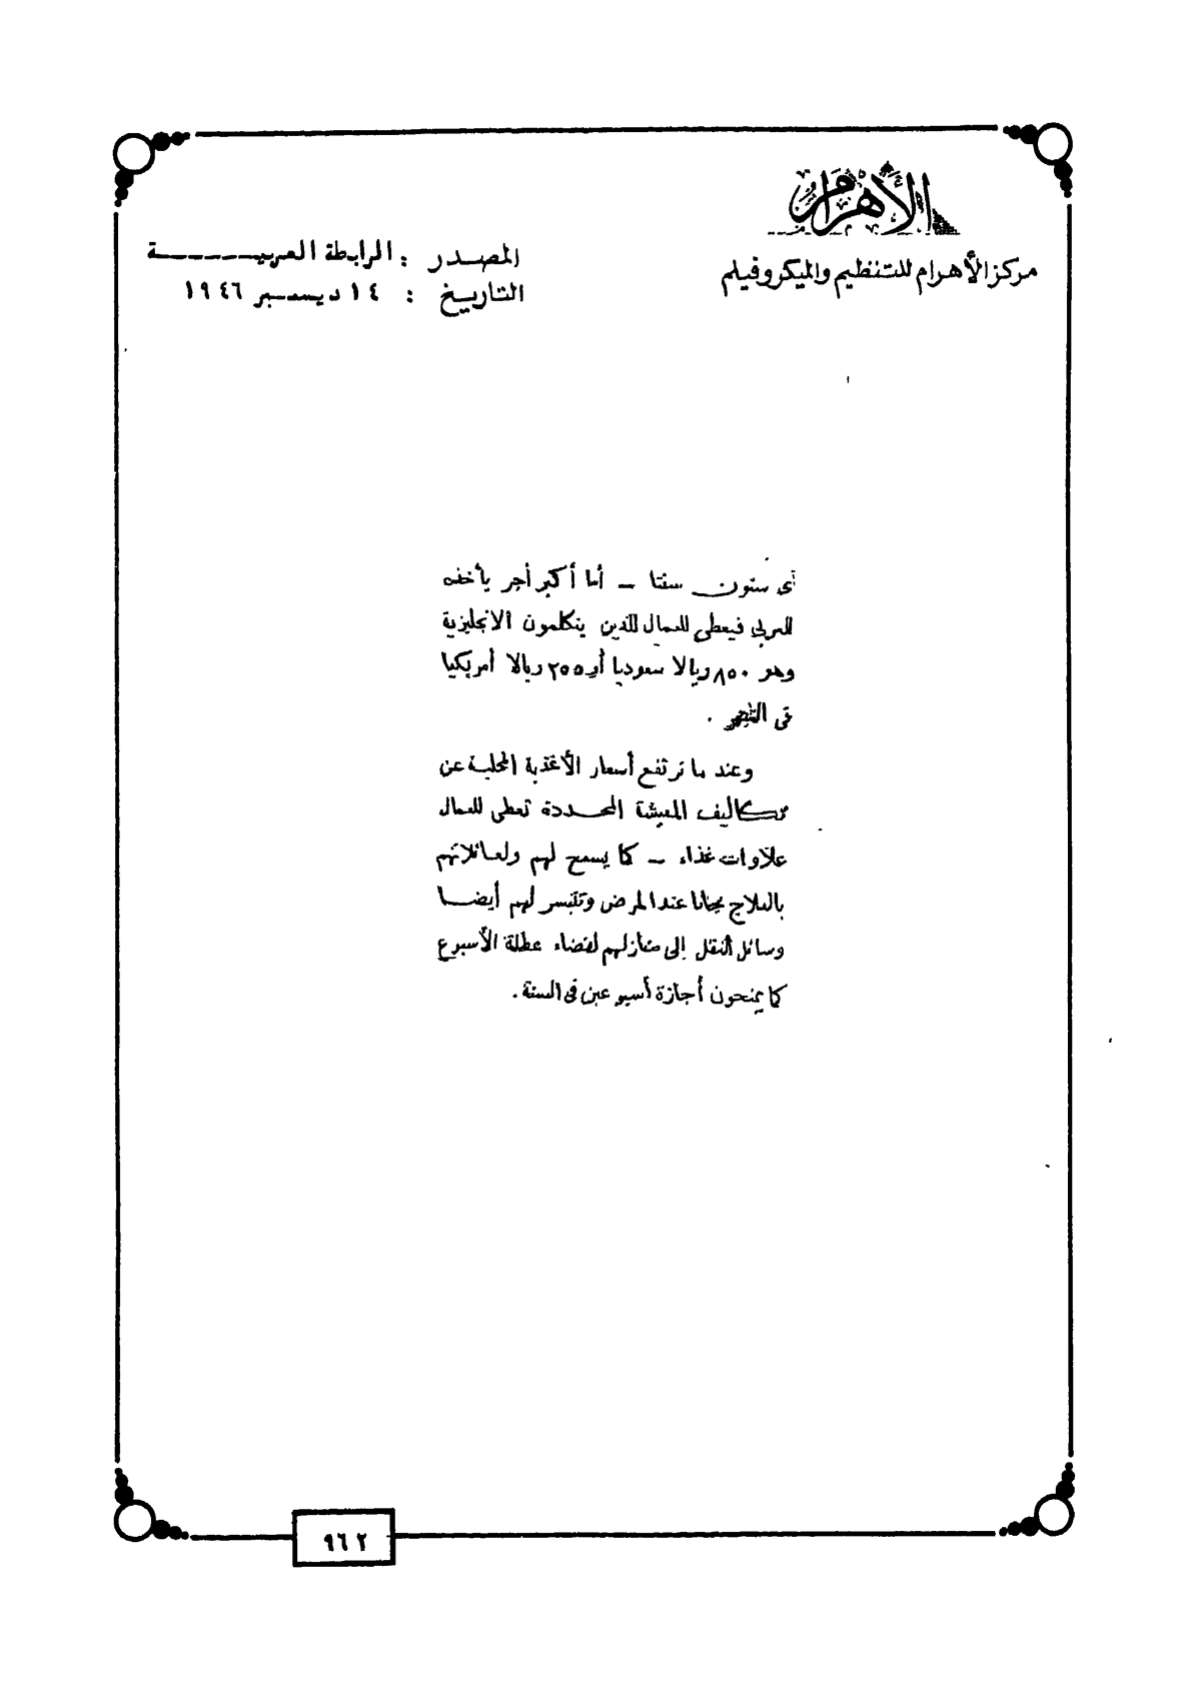 الأهرام
مركز الأهرام للتنظيم والميكروفيلم
المصدر : الرابطة العربية
التاريخ : ١٤ ديسمبر ١٩٤٦
أى ستون سنتا — أما أكبر أجر يأخذه
العربى فيعطى للعمال الذين يتكلمون الانجليزية
وهو ٨٥٠ ريالا سعوديا أو ٢٥٥ ريالا أمريكيا
فى الشهر .
وعند ما ترتفع أسعار الأغذية المحلية عن
تكاليف المعيشة المحددة تعطى للعمال
علاوات غذاء — كما يسمح لهم ولعائلاتهم
بالعلاج مجانا عند المرض وتتيسر لهم أيضا
وسائل النقل إلى منازلهم لقضاء عطلة الأسبوع
كما يمنحون أجازة أسبوعين فى السنة .
٩٦٢